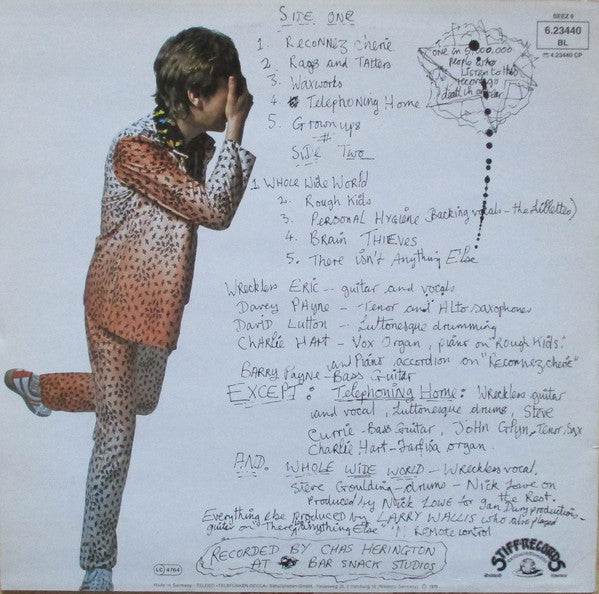 SIDE ONE
1. RECONNEZ CHERIE
2. Rags AND TATTERS
3. Waxworks
4. Telephoning Home
5. Grown ups
SIDE Two
1. WHOLE WIDE WORLD
2. ROUGH KIDS
3. PERSONAL HYGIENE (Backing vocals - the Lillettes)
4. BRAIN THIEVES
5. THERE isn't ANYthing ELSE
WRECKLESS ERIC - guitar and vocals
Davey PAYne - Tenor and Alto saxophones
DAVID LUTTON - Luttonesque drumming
CHARLIE HART - VOX ORGAN, piano on "ROUGH KIDS"
and Piano accordion on "RECONNEZ cherie"
BARRY PAYNE - BASS GUITAR
EXCEPT: Telephoning Home: Wreckless guitar
and vocal, Luttonesque drums, STEVE
CURRIE - BASS GUITAR, JOHN GLYN - Tenor Sax
CHARLIE HART - Farfisa organ.
AND. WHOLE WIDE WORLD - Wreckless vocal.
STEVE GOULDING - drums - NICK Lowe on
the Rest.
PRODUCED by NICK LOWE for Ian Dury productions -
Everything else produced by LARRY WALLIS who also played
guitar on "There isn't anything ELSE" REMOTE control
RECORDED BY CHAS HERINGTON
AT BAR SNACK STUDIOS
SEEZ 6
6.23440
BL
4.23440 CP
one in 5,000,000
people who
LISTEN to this
record go
death in
LC 4764
Made in Germany
1978
STIFF-RECORDS